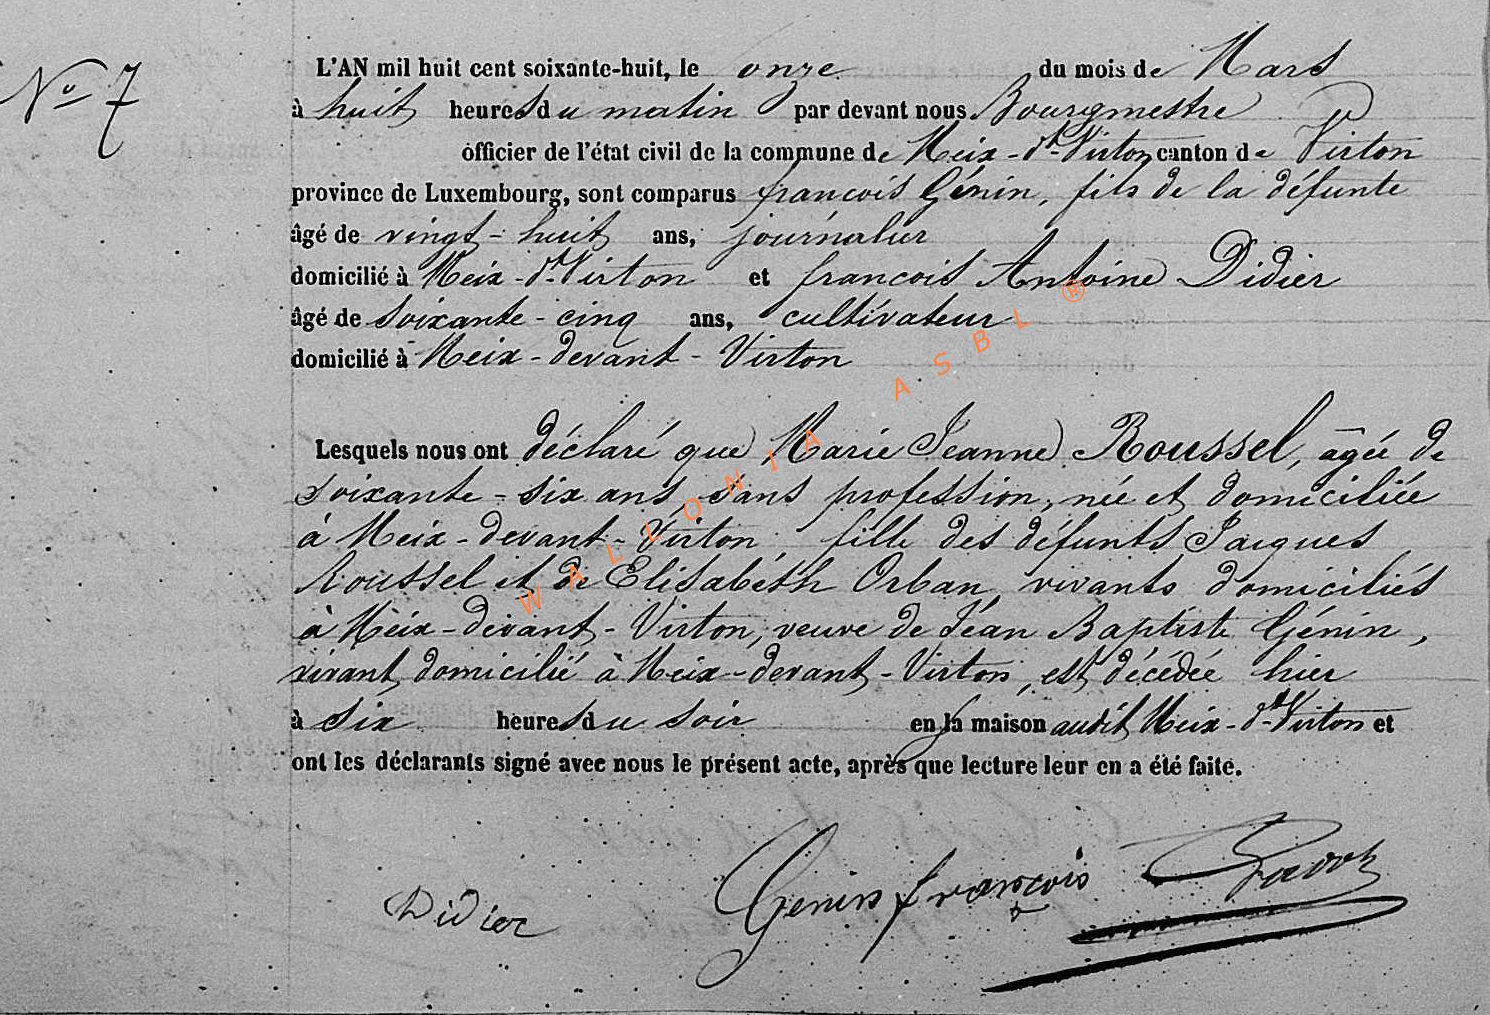 No 7
L'AN mil huit cent soixante-huit, le onze du mois de Mars
à huit heures du matin par devant nous Bourgmestre
officier de l'état civil de la commune de Meix-dt-Virton canton de Virton
province de Luxembourg, sont comparus francois Génin, fils de la défunte
âgé de vingt-huit ans, journalier
domicilié à Meix-dt-Virton et francois Antoine Didier
âgé de soixante-cinq ans, cultivateur
domicilié à Meix-devant-Virton
Lesquels nous ont déclaré que Marie Jeanne Roussel, agée de
soixante-six ans sans profession, née et domiciliée
à Meix-devant-Virton fille des défunts Jacques
Roussel et de Elisabéth Orban, vivants domiciliés
à Meix-devant-Virton, veuve de Jéan Baptiste Génin,
vivant domicilié à Meix-devant-Virton, est décédée hier
à six heures du soir en la maison audit Meix-dt-Virton et
ont les déclarants signé avec nous le présent acte, après que lecture leur en a été faite.
Didier Genin françois
WALLONIA ASBL ®